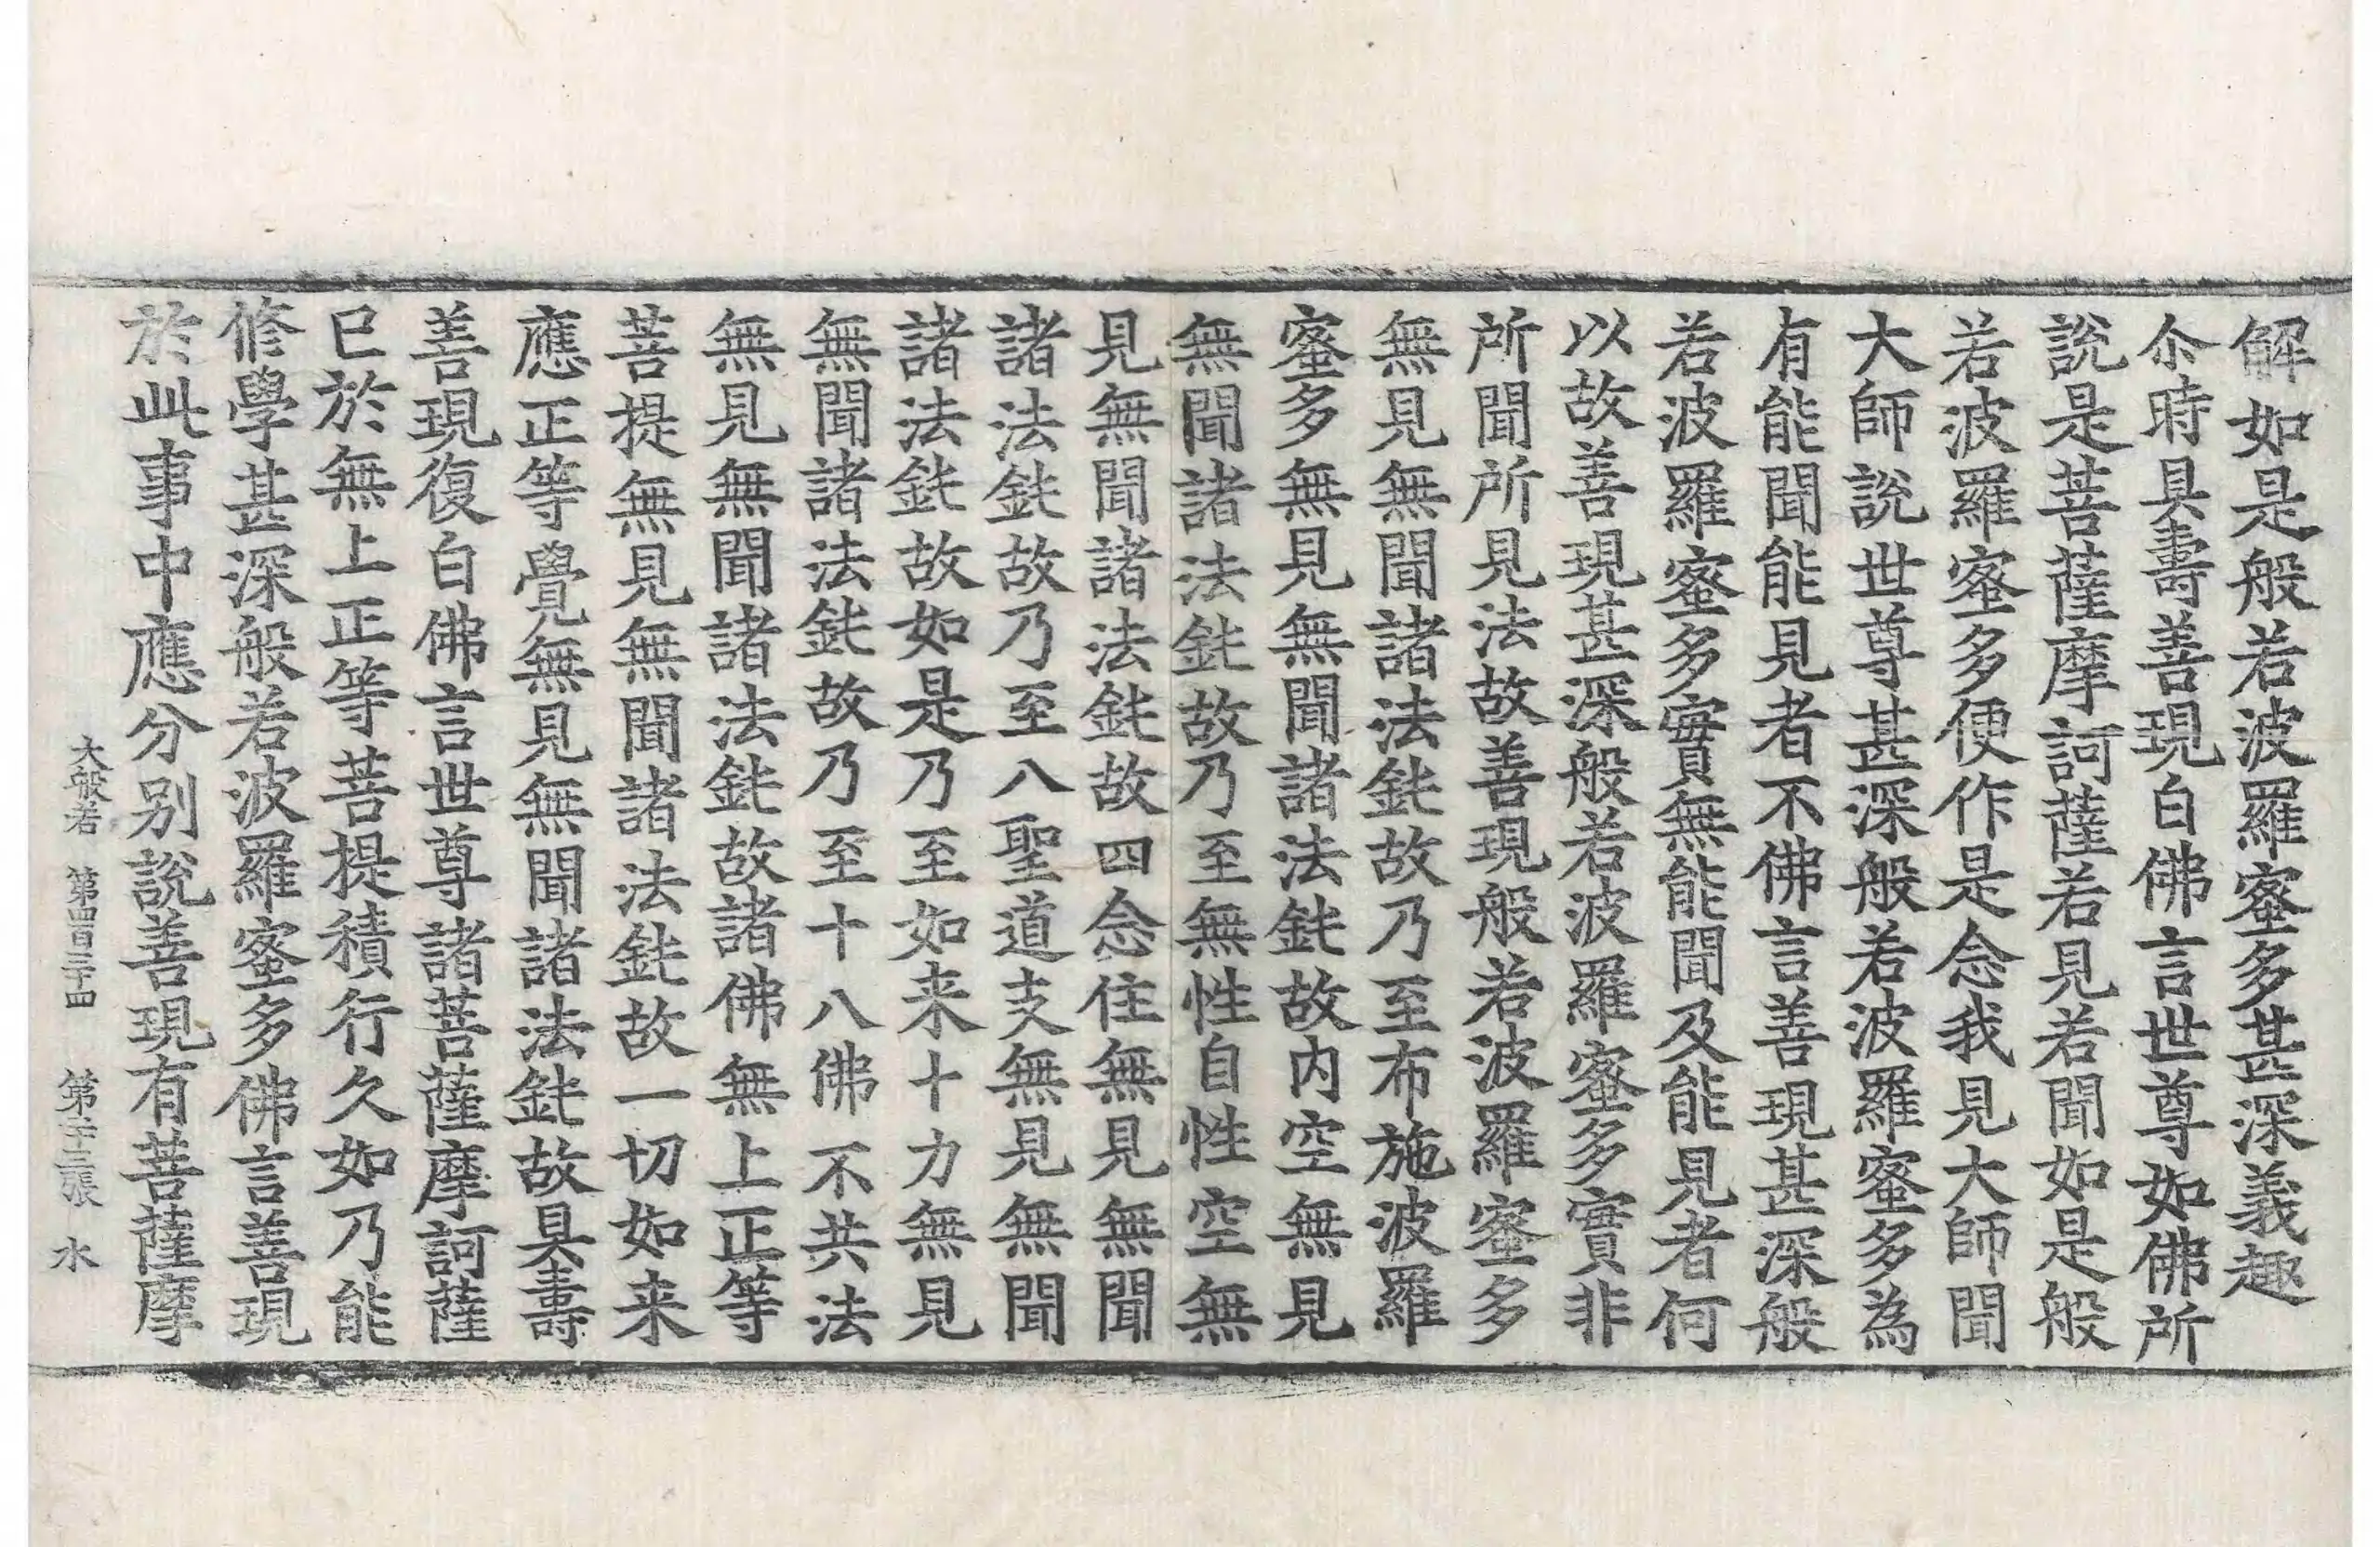 解如是般若波羅蜜多甚深義趣
尒時具壽善現白佛言世尊如佛所
說是菩薩摩訶薩若見若聞如是般
若波羅蜜多便作是念我見大師聞
大師說世尊甚深般若波羅蜜多為
有能聞能見者不佛言善現甚深般
若波羅蜜多實無能聞及能見者何
以故善現甚深般若波羅蜜多實非
所聞所見法故善現般若波羅蜜多
無見無聞諸法鈍故乃至布施波羅
蜜多無見無聞諸法鈍故內空無見
無聞諸法鈍故乃至無性自性空無
見無聞諸法鈍故四念住無見無聞
諸法鈍故乃至八聖道支無見無聞
諸法鈍故如是乃至如来十力無見
無聞諸法鈍故乃至十八佛不共法
無見無聞諸法鈍故諸佛無上正等
菩提無見無聞諸法鈍故一切如来
應正等覺無見無聞諸法鈍故具壽
善現復白佛言世尊諸菩薩摩訶薩
已於無上正等菩提積行久如乃能
修學甚深般若波羅蜜多佛言善現
於此事中應分別說善現有菩薩摩
大般若 第四百三十四 第二十三張 水